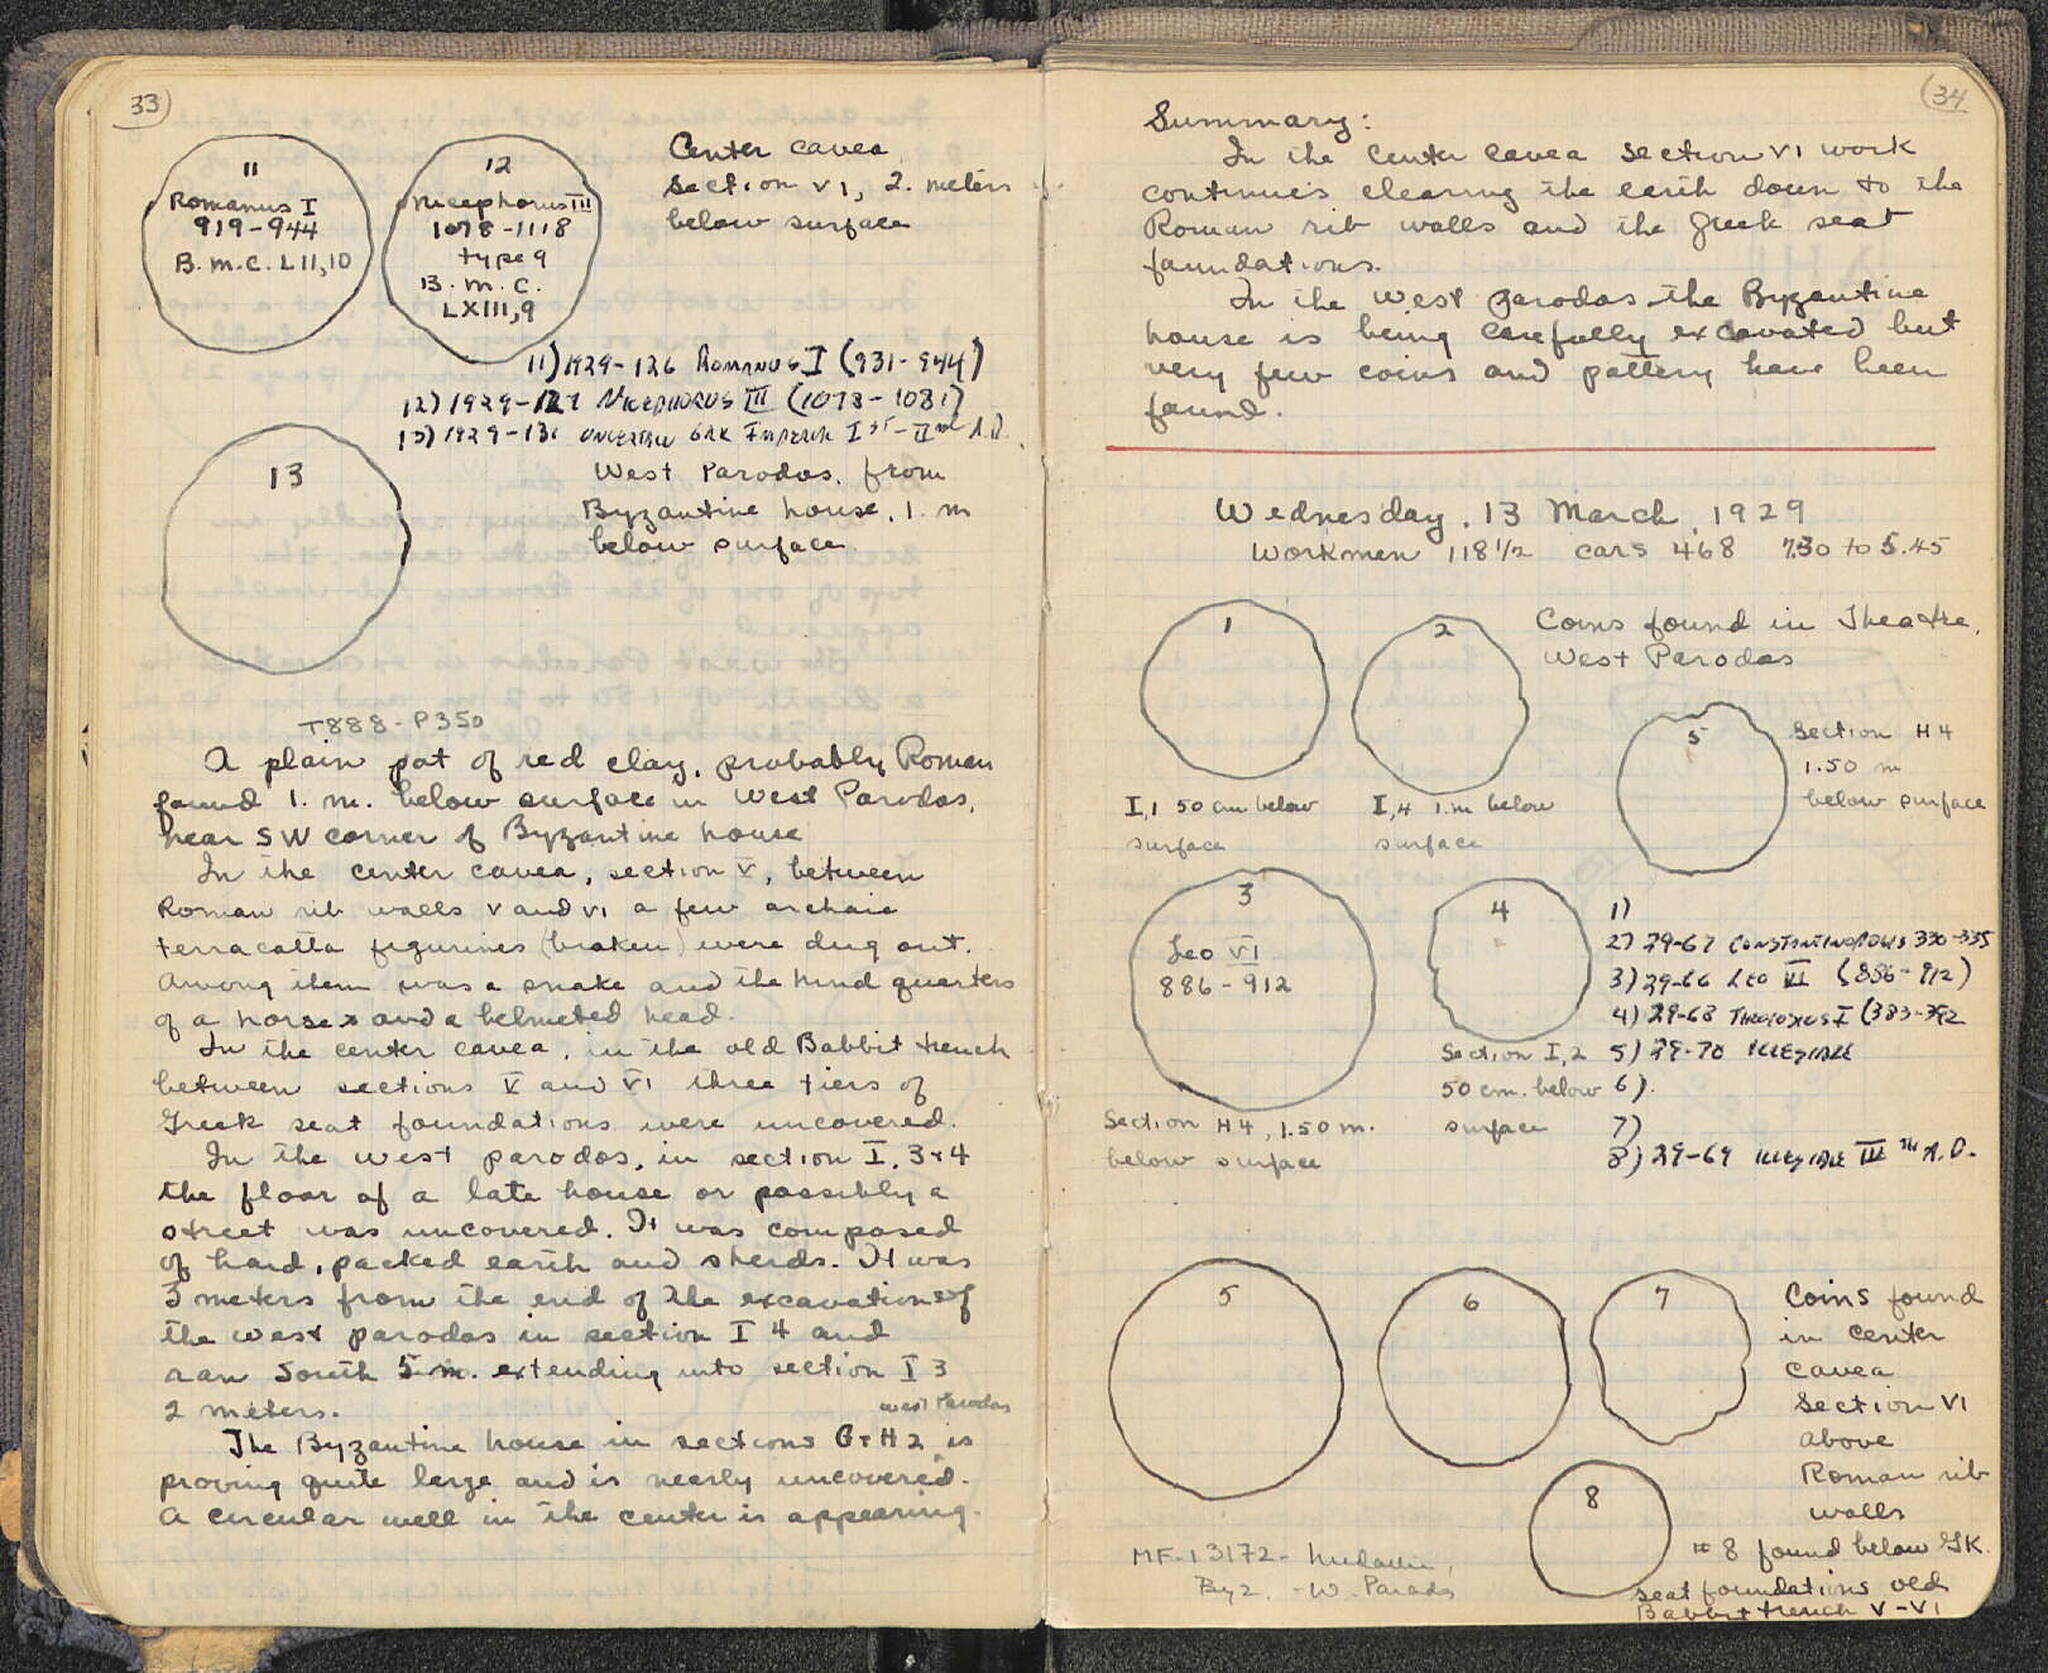 33
11
Romanus I
919-944
B.M.C. LII,10
12
Nicephorus III
1078-1118
type 9
B.M.C.
LXIII,9
Center cavea
Section VI, 2. meters
below surface
11) 1929-126 Romanus I (931-944)
12) 1929-127 Nicephorus III (1078-1081)
13) 1929-131 Uncertain Grk Imperial Ist-IInd A.D.
13
West Parodos. from
Byzantine house, 1. m
below surface
T888-P350
A plain pot of red clay, probably Roman
found 1. m. below surface in West Parodos,
near SW corner of Byzantine house
In the center cavea, section V, between
Roman rib walls V and VI a few archaic
terracotta figurines (broken) were dug out.
Among them was a snake and the hind quarters
of a horse and a helmeted head.
In the center cavea, in the old Babbit trench
between sections V and VI three tiers of
Greek seat foundations were uncovered.
In the west parodos, in section I, 3+4
the floor of a late house or possibly a
street was uncovered. It was composed
of hard, packed earth and sherds. It was
3 meters from the end of the excavations of
the west parodos in section I 4 and
ran South 5 m. extending into section I 3
2 meters.
West Parodos
The Byzantine house in sections G+H2, is
proving quite large and is nearly uncovered.
A circular well in the center is appearing.
34
Summary:
In the center cavea section VI work
continues clearing the earth down to the
Roman rib walls and the Greek seat
foundations.
In the west parodos the Byzantine
house is being carefully excavated but
very few coins and pottery have been
found.
Wednesday, 13 March, 1929
Workmen 118 1/2 cars 468 7.30 to 5.45
1
2
Coins found in Theatre,
West Parodos
I,1 50 cm below
surface
I,4 1.m below
surface
5
Section H4
1.50 m
below surface
3
Leo VI
886-912
Section H4, 1.50 m.
below surface
4
Section I,2
50 cm. below
surface
1)
2) 29-67 Constantinopolis 330-335
3) 29-66 Leo VI (886-912)
4) 29-68 Theodosius I (383-392
5) 29-70 Illegible
6).
7)
8) 29-69 Illegible III rd A.D.
5
6
7
Coins found
in center
cavea
Section VI
above
Roman rib
walls
8
# 8 found below GK.
seat foundations old
Babbit trench V-VI
MF-13172-
Byz. -W. Parodos